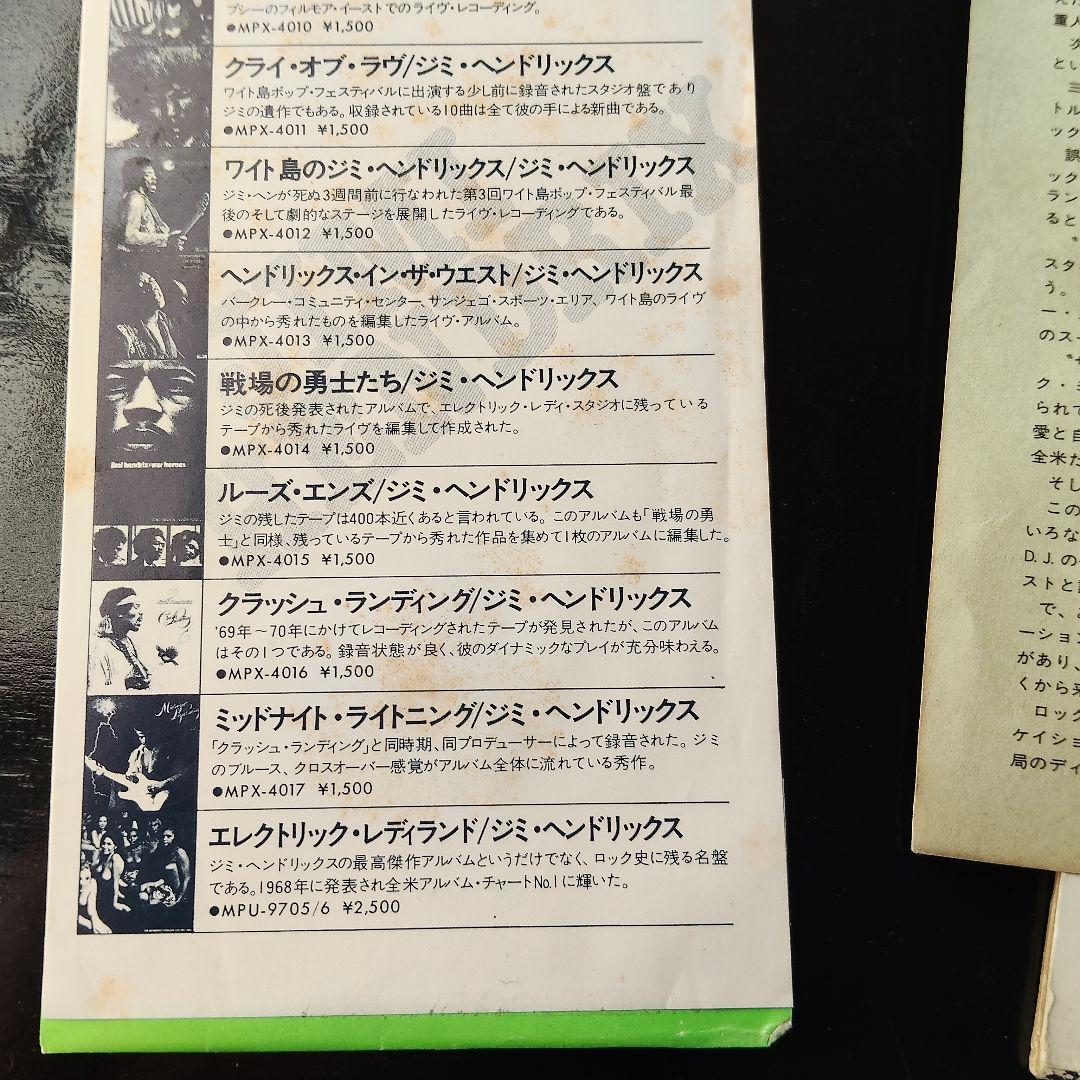 プシーのフィルモア・イーストでのライヴ・レコーディング。
●MPX-4010 ¥1,500
クライ・オブ・ラヴ/ジミ・ヘンドリックス
ワイト島ポップ・フェスティバルに出演する少し前に録音されたスタジオ盤であり
ジミの遺作でもある。収録されている10曲は全て彼の手による新曲である。
●MPX-4011 ¥1,500
ワイト島のジミ・ヘンドリックス/ジミ・ヘンドリックス
ジミ・ヘンが死ぬ3週間前に行なわれた第3回ワイト島ポップ・フェスティバル最
後のそして劇的なステージを展開したライヴ・レコーディングである。
●MPX-4012 ¥1,500
ヘンドリックス・イン・ザ・ウエスト/ジミ・ヘンドリックス
バークレー・コミュニティ・センター、サンジェゴ・スポーツ・エリア、ワイト島のライヴ
の中から秀れたものを編集したライヴ・アルバム。
●MPX-4013 ¥1,500
戦場の勇士たち/ジミ・ヘンドリックス
ジミの死後発表されたアルバムで、エレクトリック・レディ・スタジオに残っている
テープから秀れたライヴを編集して作成された。
●MPX-4014 ¥1,500
jimi hendrix:war heroes
ルーズ・エンズ/ジミ・ヘンドリックス
ジミの残したテープは400本近くあると言われている。このアルバムも「戦場の勇
士」と同様、残っているテープから秀れた作品を集めて1枚のアルバムに編集した。
●MPX-4015 ¥1,500
クラッシュ・ランディング/ジミ・ヘンドリックス
'69年〜70年にかけてレコーディングされたテープが発見されたが、このアルバム
はその1つである。録音状態が良く、彼のダイナミックなプレイが充分味わえる。
●MPX-4016 ¥1,500
ミッドナイト・ライトニング/ジミ・ヘンドリックス
「クラッシュ・ランディング」と同時期、同プロデューサーによって録音された。ジミ
のブルース、クロスオーバー感覚がアルバム全体に流れている秀作。
●MPX-4017 ¥1,500
エレクトリック・レディランド/ジミ・ヘンドリックス
ジミ・ヘンドリックスの最高傑作アルバムというだけでなく、ロック史に残る名盤
である。1968年に発表され全米アルバム・チャートNo.1に輝いた。
●MPU-9705/6 ¥2,500
重人
次
とい
三
トル
ック
誤
ック
ラン
ると
スタ
う。
ー・
のス
ク・ミ
られて
愛と自
全米た
そし
この
いろな
D.J.の
ストと
で、
ーション
があり、
くから
ロック
ケイショ
局のディ